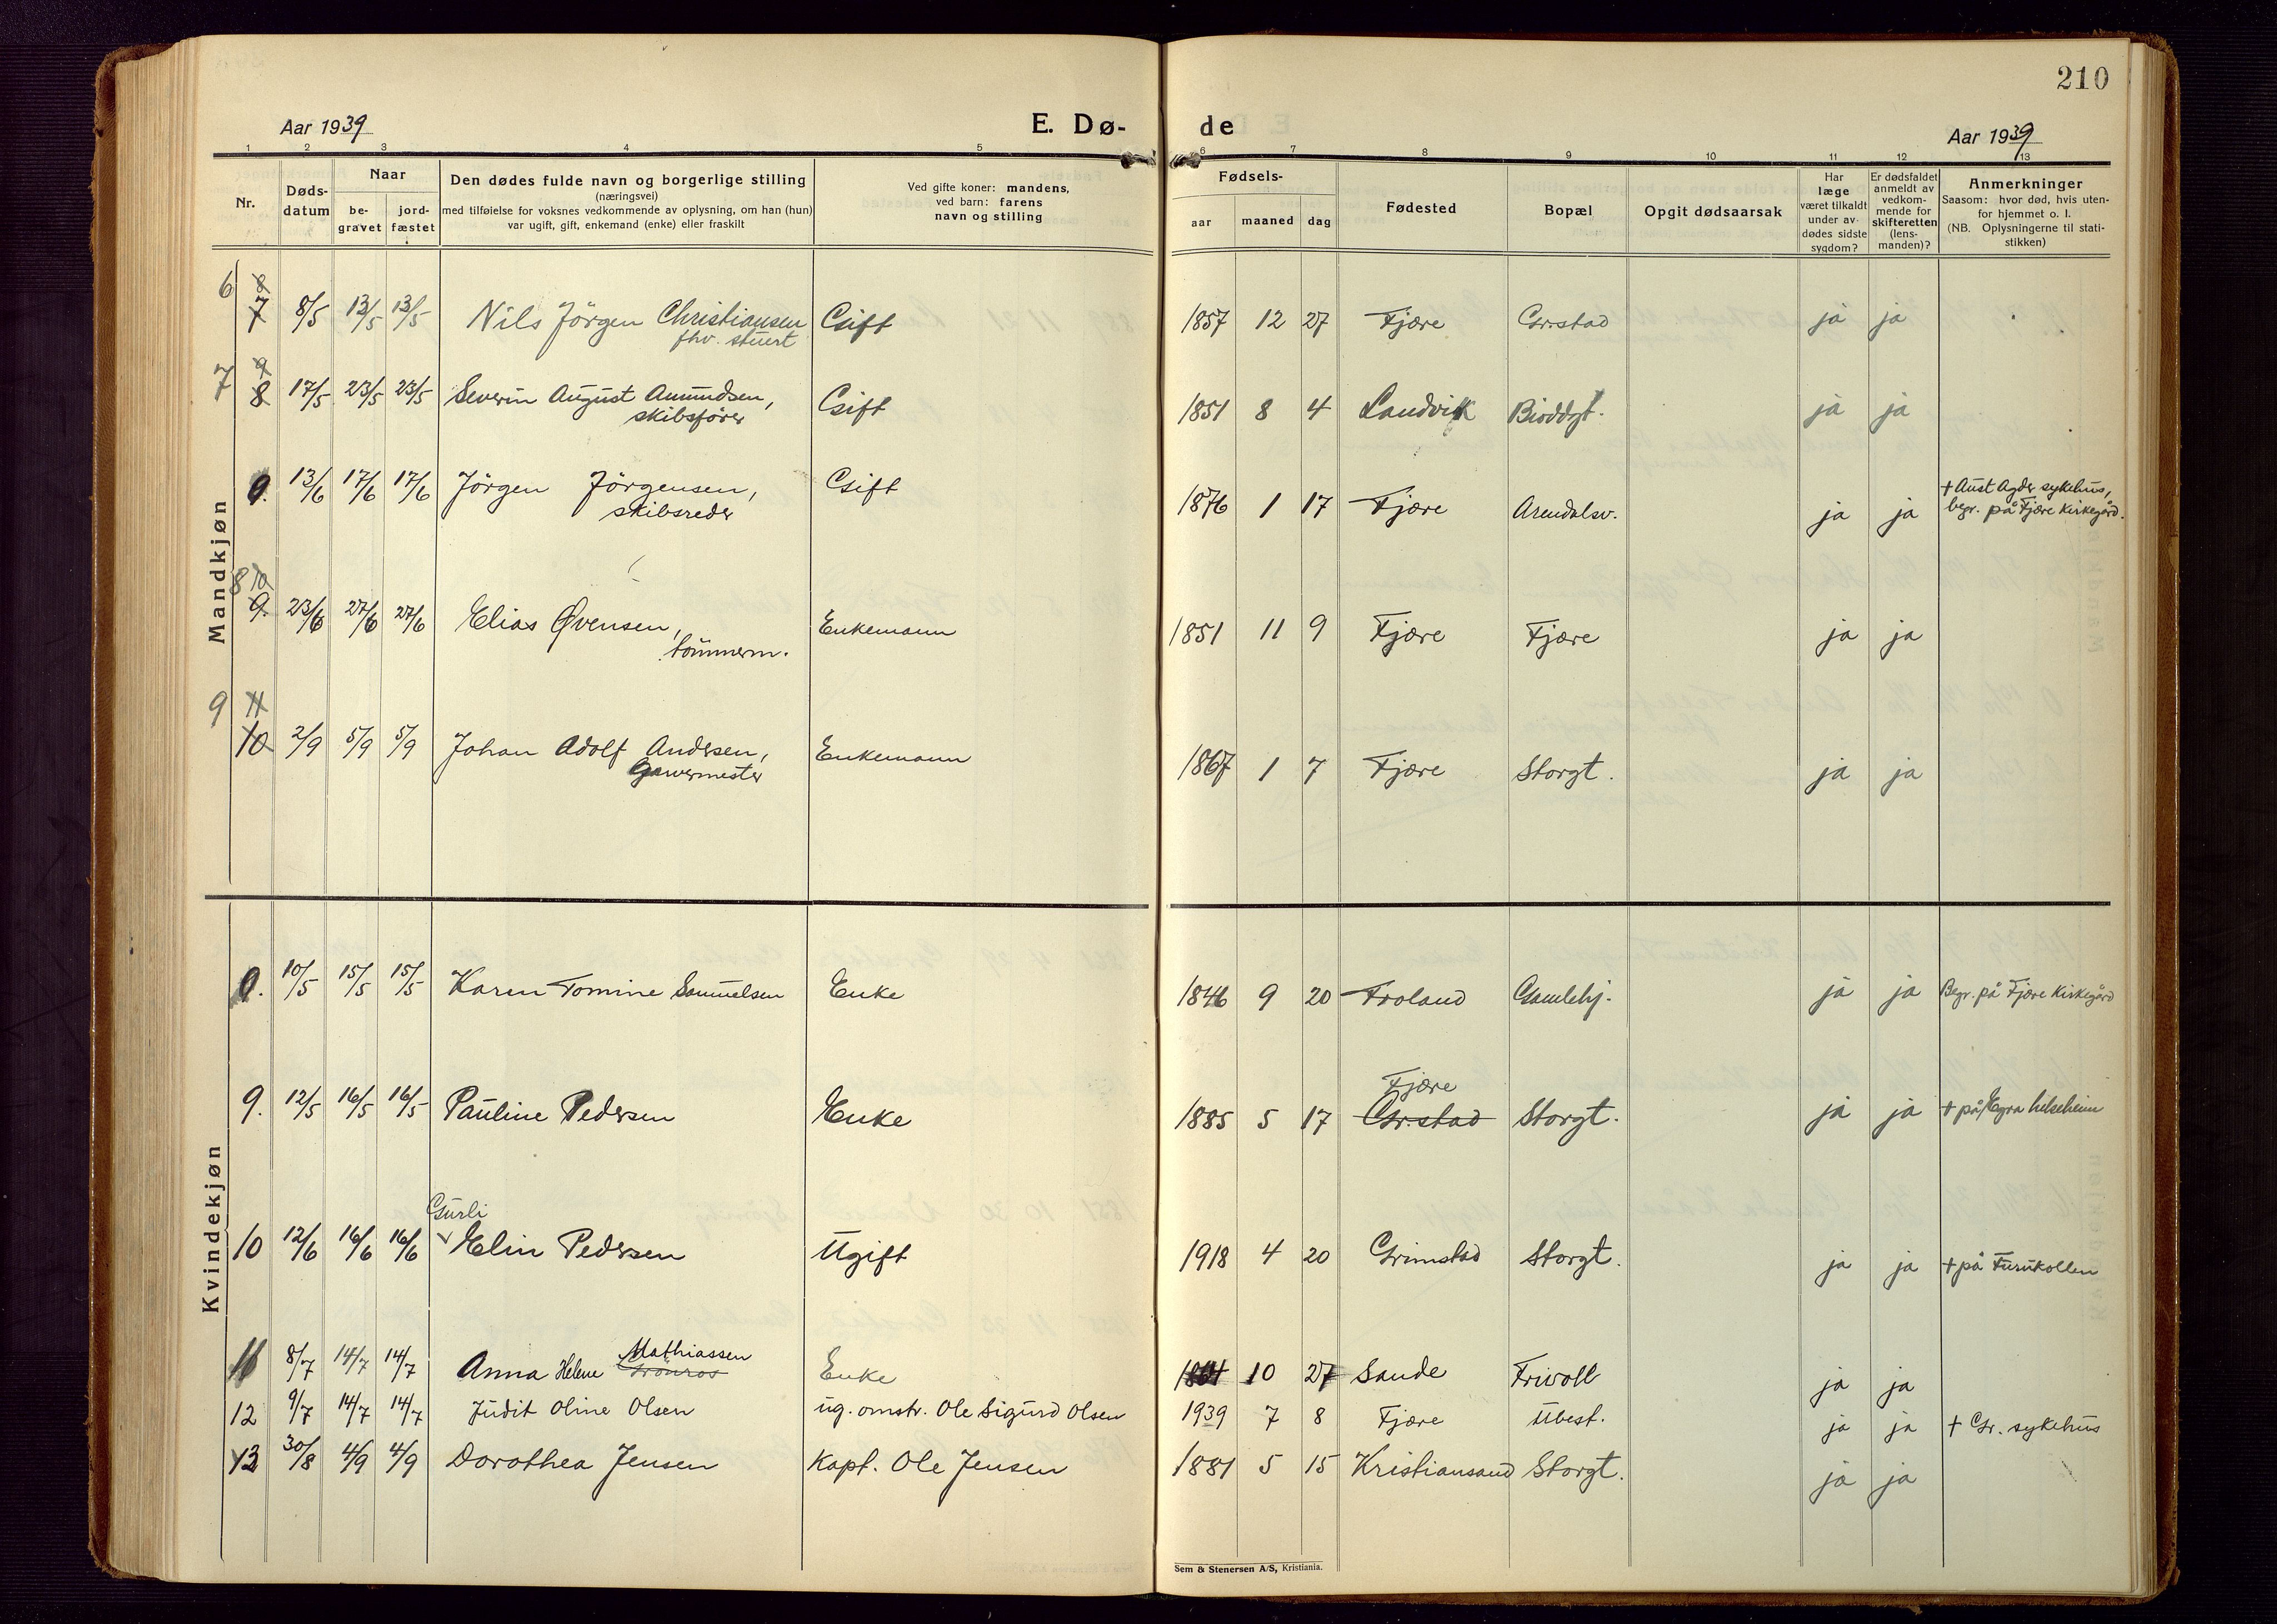 210
Aar 1939 E. Dø- de Aar 1939
1 2 3 4 5 6 7 8 9 10 11 12 13
Nr.
Døds-
datum
Naar
be-
gravet
jord-
fæstet
Den dødes fulde navn og borgerlige stilling
(næringsvei)
med tilføielse for voksnes vedkommende av oplysning, om han (hun)
var ugift, gift, enkemand (enke) eller fraskilt
Ved gifte koner: mandens,
ved barn: farens
navn og stilling
Fødsels-
aar maaned dag
Fødested
Bopæl
Opgit dødsaarsak
Har
læge
været tilkaldt
under av-
dødes sidste
sygdom?
Er dødsfaldet
anmeldt av
vedkom-
mende for
skifteretten
(lens-
manden)?
Anmerkninger
Saasom: hvor død, hvis uten-
for hjemmet o. l.
(NB. Oplysningerne til stati-
stikken)
Mandkjøn
6 8
7 8/5 13/5 13/5 Nils Jörgen Christiansen Gift 1857 12 27 Fjære Gr.stad ja ja
fhv. stuert
7 9
8 17/5 23/5 23/5 Severin August Amundsen, Gift 1851 8 4 Landvik Bioddgt. ja ja
skibsförer
13/6 17/6 17/6 Jörgen Jörgensen, Gift 1876 1 17 Fjære Arendalsv. ja ja + Aust Agder sykehus,
skibsreder begr. på Fjære Kirkegård.
8 10
9. 23/6 27/6 27/6 Elias Øvensen, Enkemann 1851 11 9 Fjære Fjære ja ja
tömmerm.
9 11
10 2/9 5/9 5/9 Johan Adolf Andersen, Enkemann 1867 1 7 Fjære Storgt. ja ja
Garvermester
Kvindekjøn
10/5 15/5 15/5 Karen Tomine Samuelsen Enke 1846 9 20 Froland Gamlehj. ja ja Begr. på Fjære Kirkegård
Fjære
9. 12/5 16/5 16/5 Pauline Pedersen Enke 1885 5 17 Gr.stad Storgt. ja ja + på Egra helseheim
Gurli
10 12/6 16/6 16/6 Elin Pedersen Ugift 1918 4 20 Grimstad Storgt. ja ja + på Furukollen
Mathiassen
11 8/7 14/7 14/7 Anna Helene Grönros Enke 1864 10 27 Sande Frivoll ja ja
12 9/7 14/7 14/7 Judit Oline Olsen ug. omstr. Ole Sigurd Olsen 1939 7 8 Fjære Ubest. ja ja + Gr. sykehus
13 30/8 4/9 4/9 Dorothea Jensen Kapt. Ole Jensen 1881 5 15 Kristiansand Storgt. ja ja
Sem & Stenersen A/S, Kristiania.